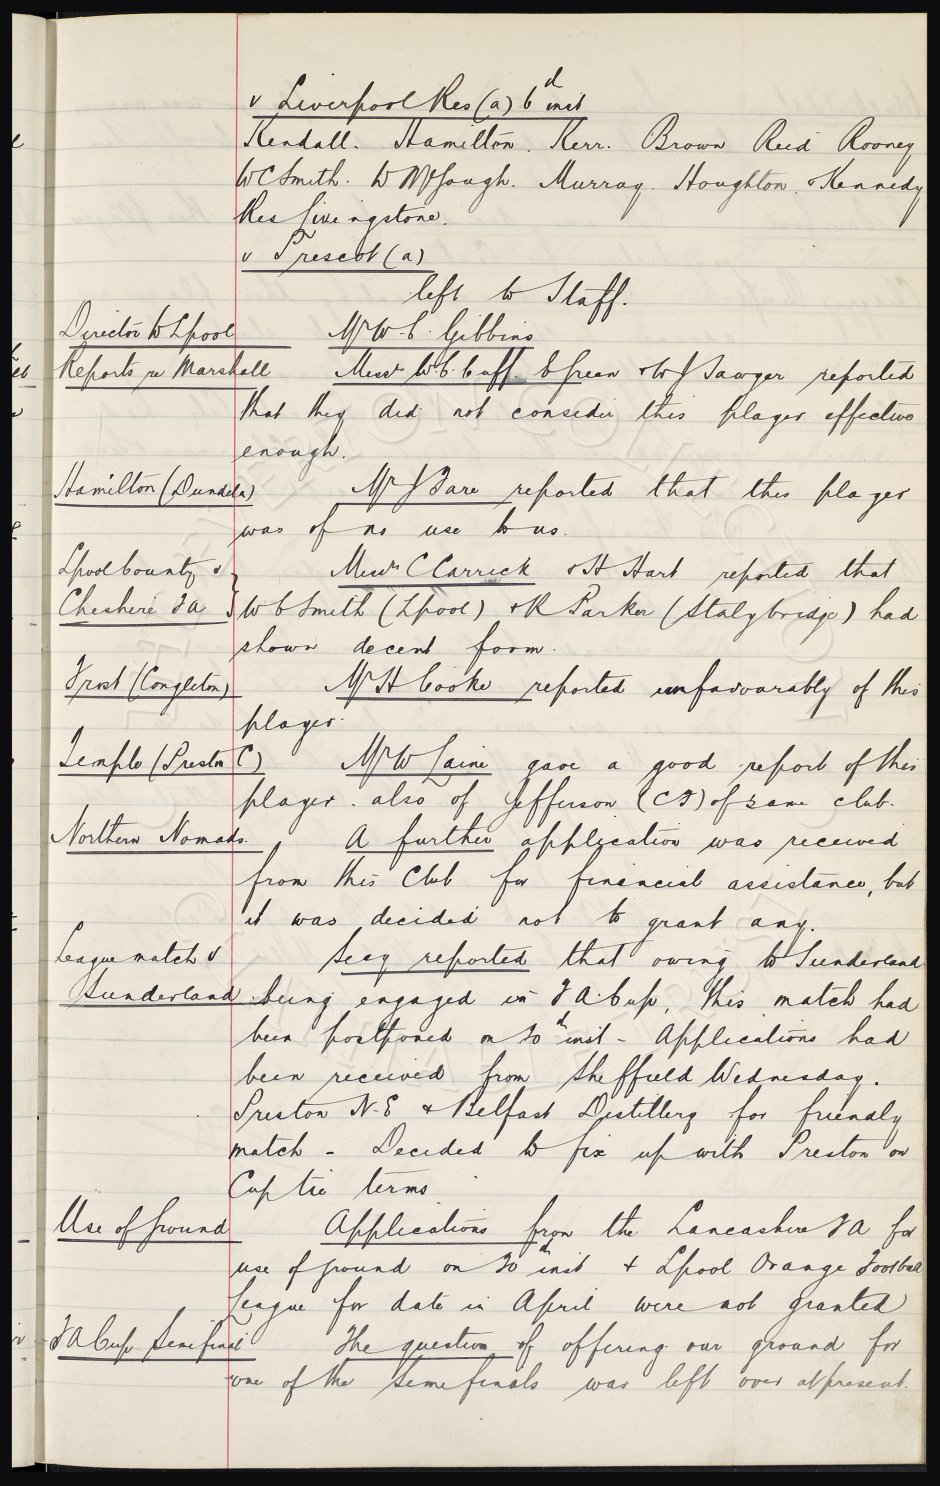 v Liverpool Res (a) 6th inst
Kendall. Hamilton. Kerr. Brown Reid Rooney
W C Smith. W McGough. Murray. Houghton. & Kennedy
Res Livingstone.
v Prescot (a)
left to Staff.
Director to Lpool Mr W. C. Gibbins
Reports re Marshall Messrs W. C. Cuff B Green & W J Sawyer reported
that they did not consider this player effective
enough.
Hamilton (Dundela) Mr J Fare reported that this player
was of no use to us.
Lpool County v Messrs C Carrick & H Hart reported that
Cheshire F A W C Smith (Lpool) & R Parker (Stalybridge) had
shown decent form.
Frost (Congleton) Mr H Cooke reported unfavourably of this
player.
Temple (Preston C) Mr W Laine gave a good report of this
player. also of Jefferson (CF) of same club.
Northern Nomads. A further application was received
from this Club for financial assistance, but
it was decided not to grant any.
League match v Secy reported that owing to Sunderland
Sunderland being engaged in F A Cup, this match had
been postponed on 20th inst - Applications had
been received from Sheffield Wednesday.
Preston N. E & Belfast Distillery for friendly
match - Decided to fix up with Preston on
Cup tie terms
Use of Ground Applications from the Lancashire F A for
use of ground on 20th inst & Lpool Orange Football
League for date in April were not granted
F A Cup Semi final The question of offering our ground for
one of the semi finals was left over at present.